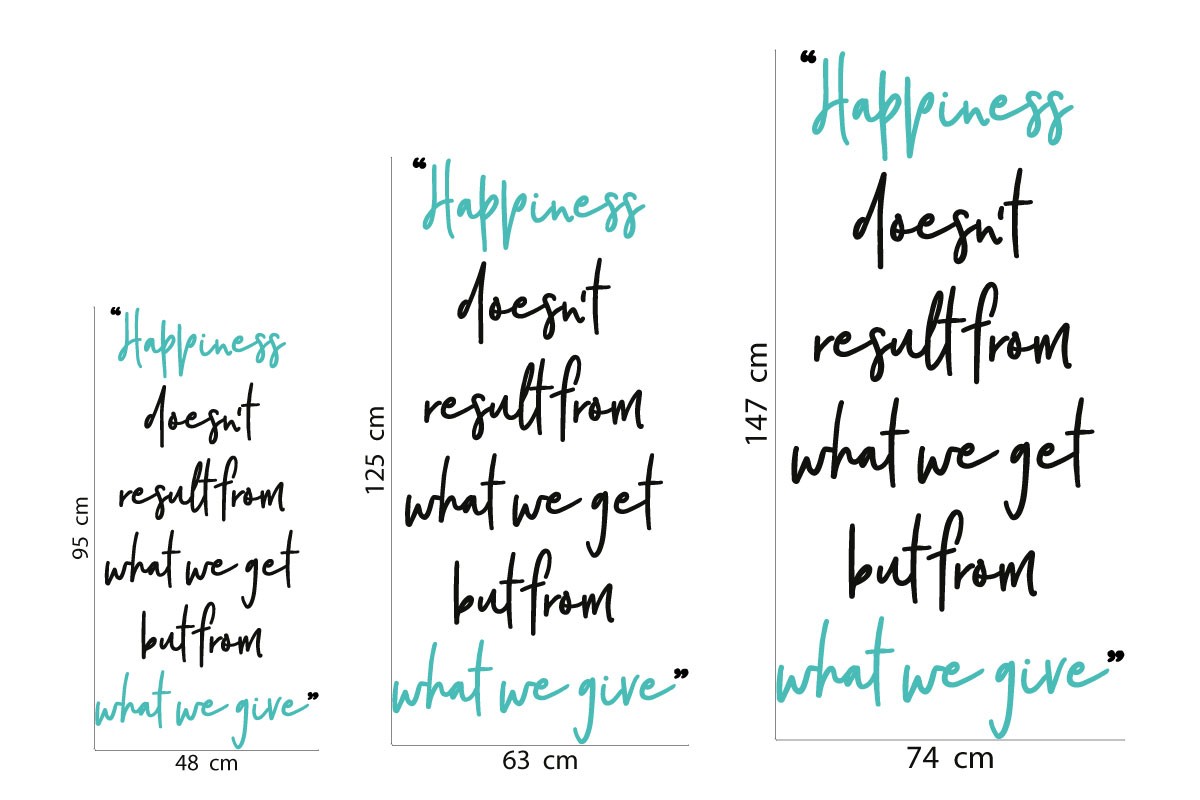 “Happiness
doesn't
result from
what we get
but from
what we give”
95 cm
48 cm
“Happiness
doesn't
result from
what we get
but from
what we give”
125 cm
63 cm
“Happiness
doesn't
result from
what we get
but from
what we give”
147 cm
74 cm